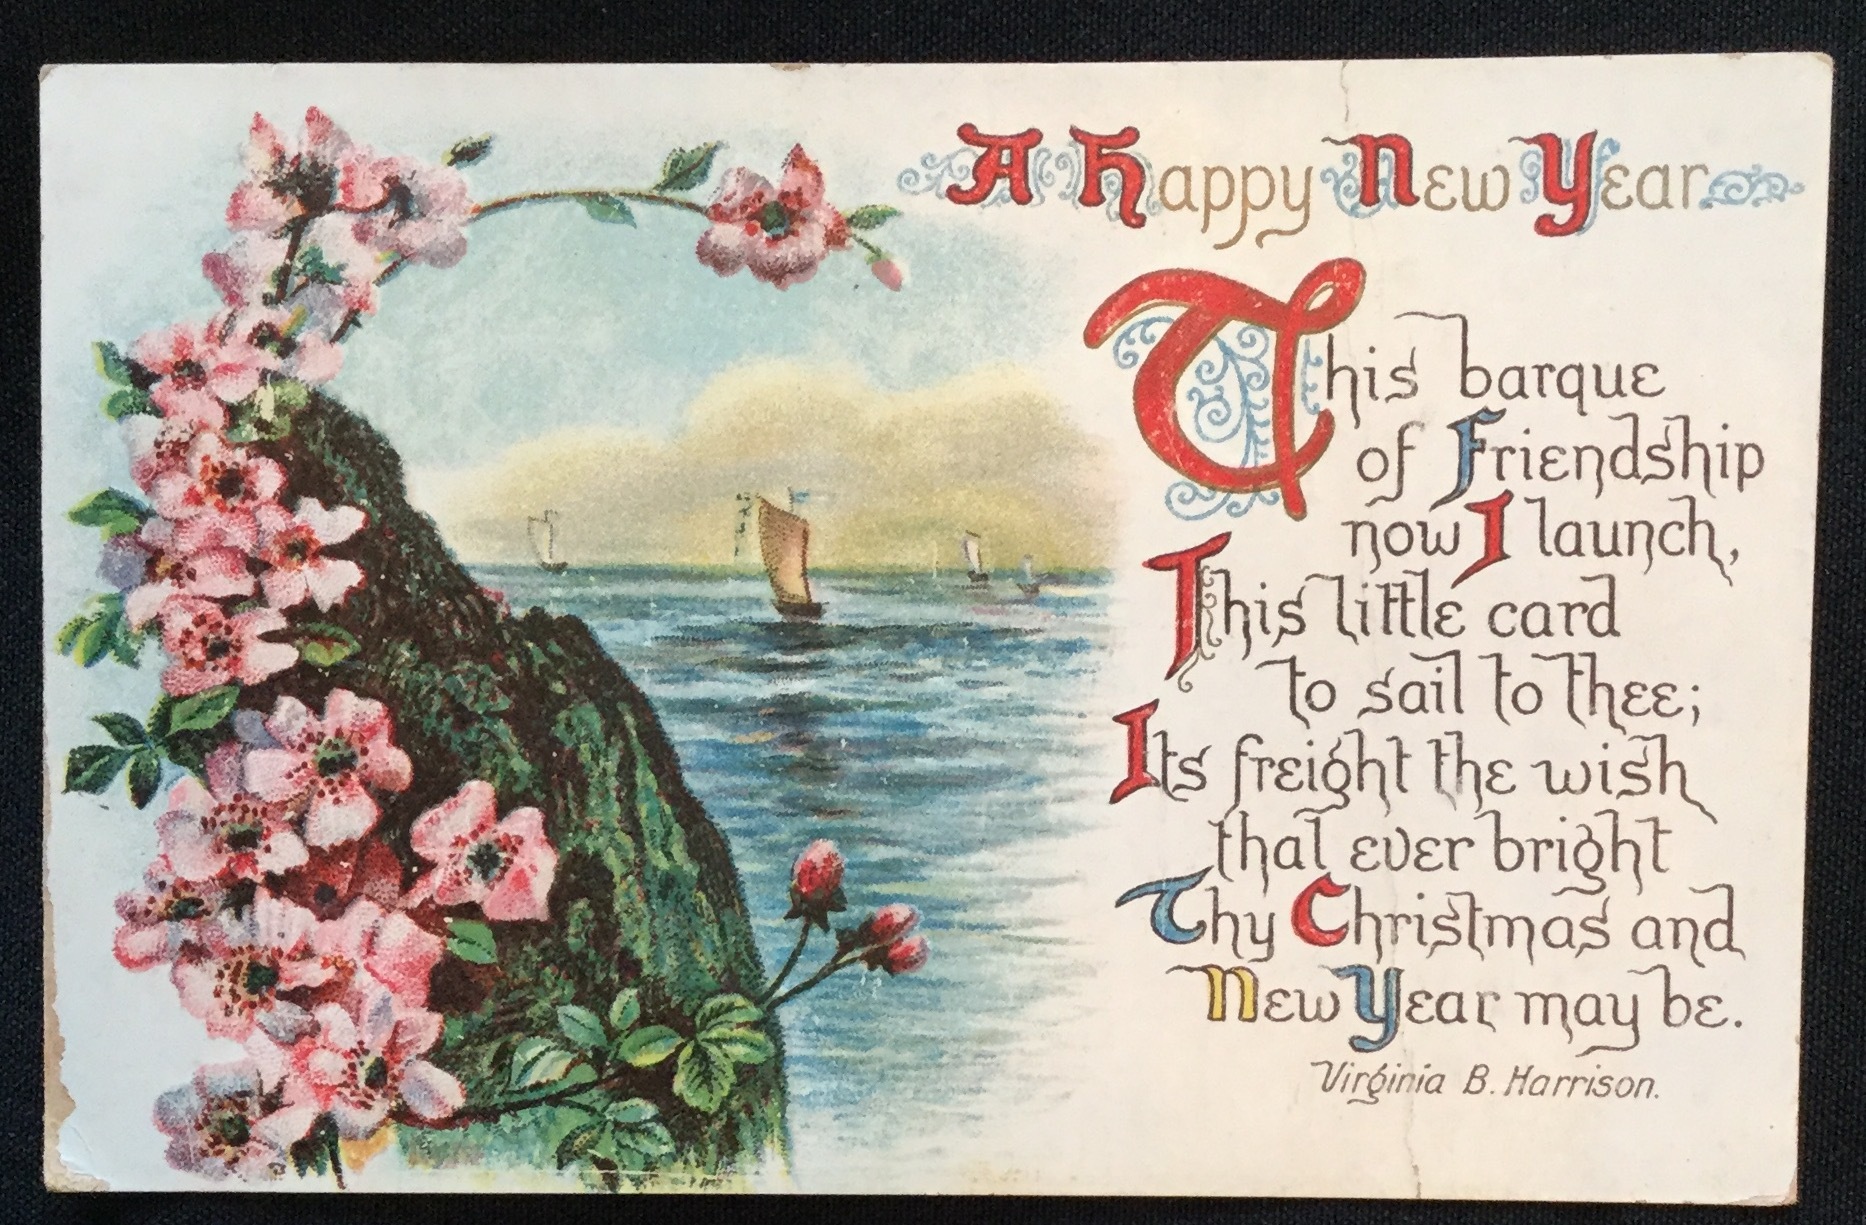 A Happy New Year
This barque
of Friendship
now I launch,
This little card
to sail to thee;
Its freight the wish
that ever bright
Thy Christmas and
New Year may be.
Virginia B. Harrison.